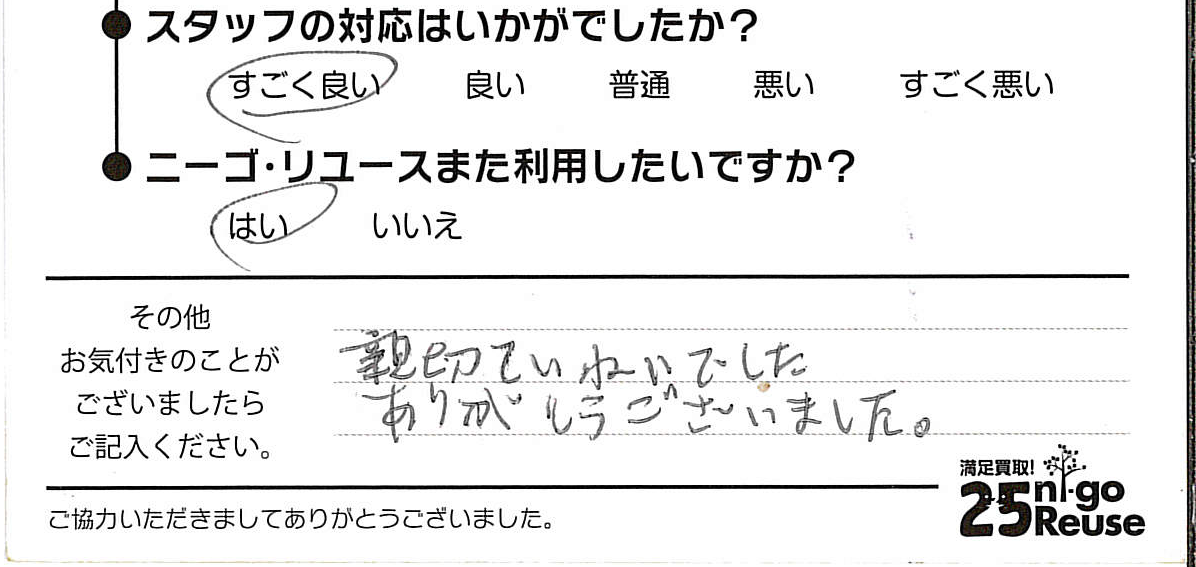 スタッフの対応はいかがでしたか？
すごく良い 良い 普通 悪い すごく悪い
ニーゴ・リユースまた利用したいですか？
はい いいえ
その他
お気付きのことが
ございましたら
ご記入ください。
親切ていねいでした
ありがとうございました。
満足買取!
25 ni-go
Reuse
ご協力いただきましてありがとうございました。